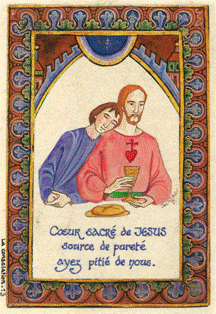 CŒUR SACRÉ de JESUS
source de pureté
ayez pitié de nous.